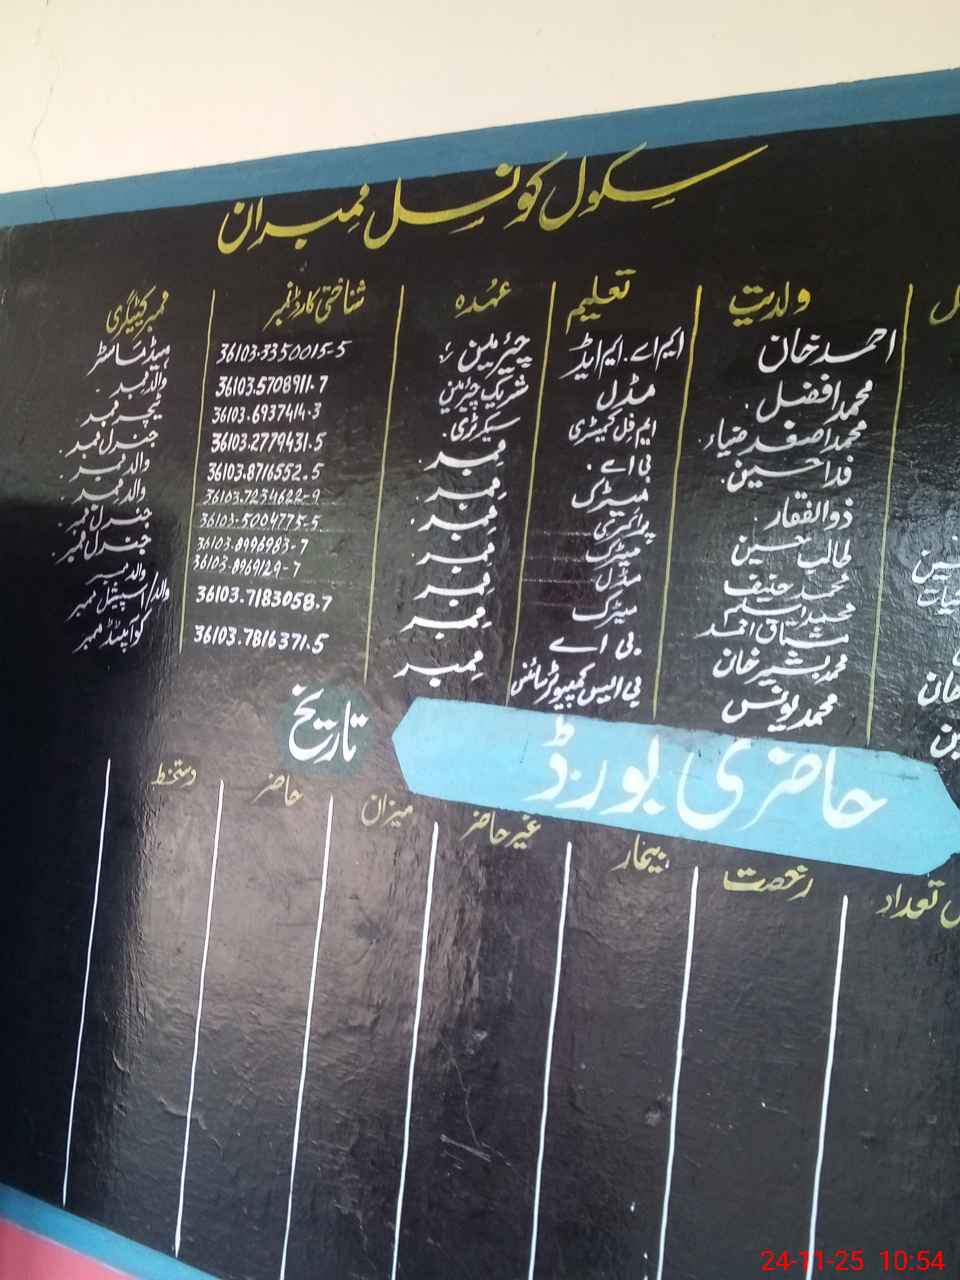 سکول کونسل ممبران
ولدیت تعلیم عہدہ شناختی کارڈ نمبر ممبر کیٹیگری
احمد خان ایم اے. ایم ایڈ چیئرمین 36103.3350015-5 ہیڈ ماسٹر
محمد افضل. مڈل شریک چیئرمین 36103.5708911.7 والد ممبر.
محمد اصغر ضیاء. ایم فل کیمسٹری سیکرٹری. 36103.6937414.3 ٹیچر ممبر
فدا حسین. بی اے. ممبر 36103.2779431.5 جنرل ممبر.
ذوالفقار میٹرک ممبر. 36103.8716552.5 والد ممبر
طالب حسین پرائمری ممبر. 36103.7234622-9 والد ممبر.
محمد حنیف میٹرک ممبر. 36103.5004775-5 جنرل ممبر.
محمد اسلم مڈل ممبر 36103.8996983-7 جنرل ممبر.
مشتاق احمد میٹرک ممبر 36103.8969129-7 والد ممبر
محمد بشیر خان بی اے. ممبر 36103.7183058.7 والد/اسپیشل ممبر
محمد یونس بی ایس کمپیوٹر سائنس ممبر 36103.7816371.5 کوآپٹڈ ممبر
حاضری بورڈ تاریخ
تعداد رخصت بیمار غیر حاضر میزان حاضر دستخط
24-11-25 10:54